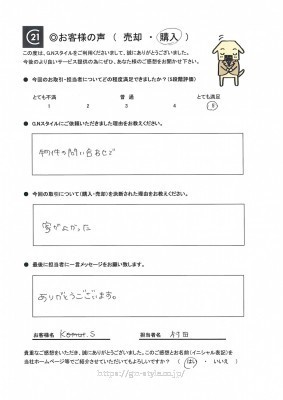 21
◎お客様の声 ( 売却 ・ 購入 )
この度は、G.Nスタイルをご利用くださいまして、誠にありがとうございました。
今後のより良いサービス提供の為にぜひ、あなた様のご感想をお聞かせ下さい。
● 今回のお取引・担当者についてどの程度満足できましたか？（5段階評価）
とても不満 普通 とても満足
1 2 3 4 5
● G.Nスタイルにご依頼いただきました理由をお教えください。
物件の問い合わせで
● 今回の取引について（購入・売却）を決断された理由をお教えください。
家がよかった
● 最後に担当者に一言メッセージをお願い致します。
ありがとうございます。
お客様名 K S 担当者名 村田
貴重なご感想をいただき、誠にありがとうございました。このご感想とお名前（イニシャル表記）を
当社ホームページ等でご紹介させていただいてもよろしいですか？ （ はい ・ いいえ ）
https://gn-style.co.jp/